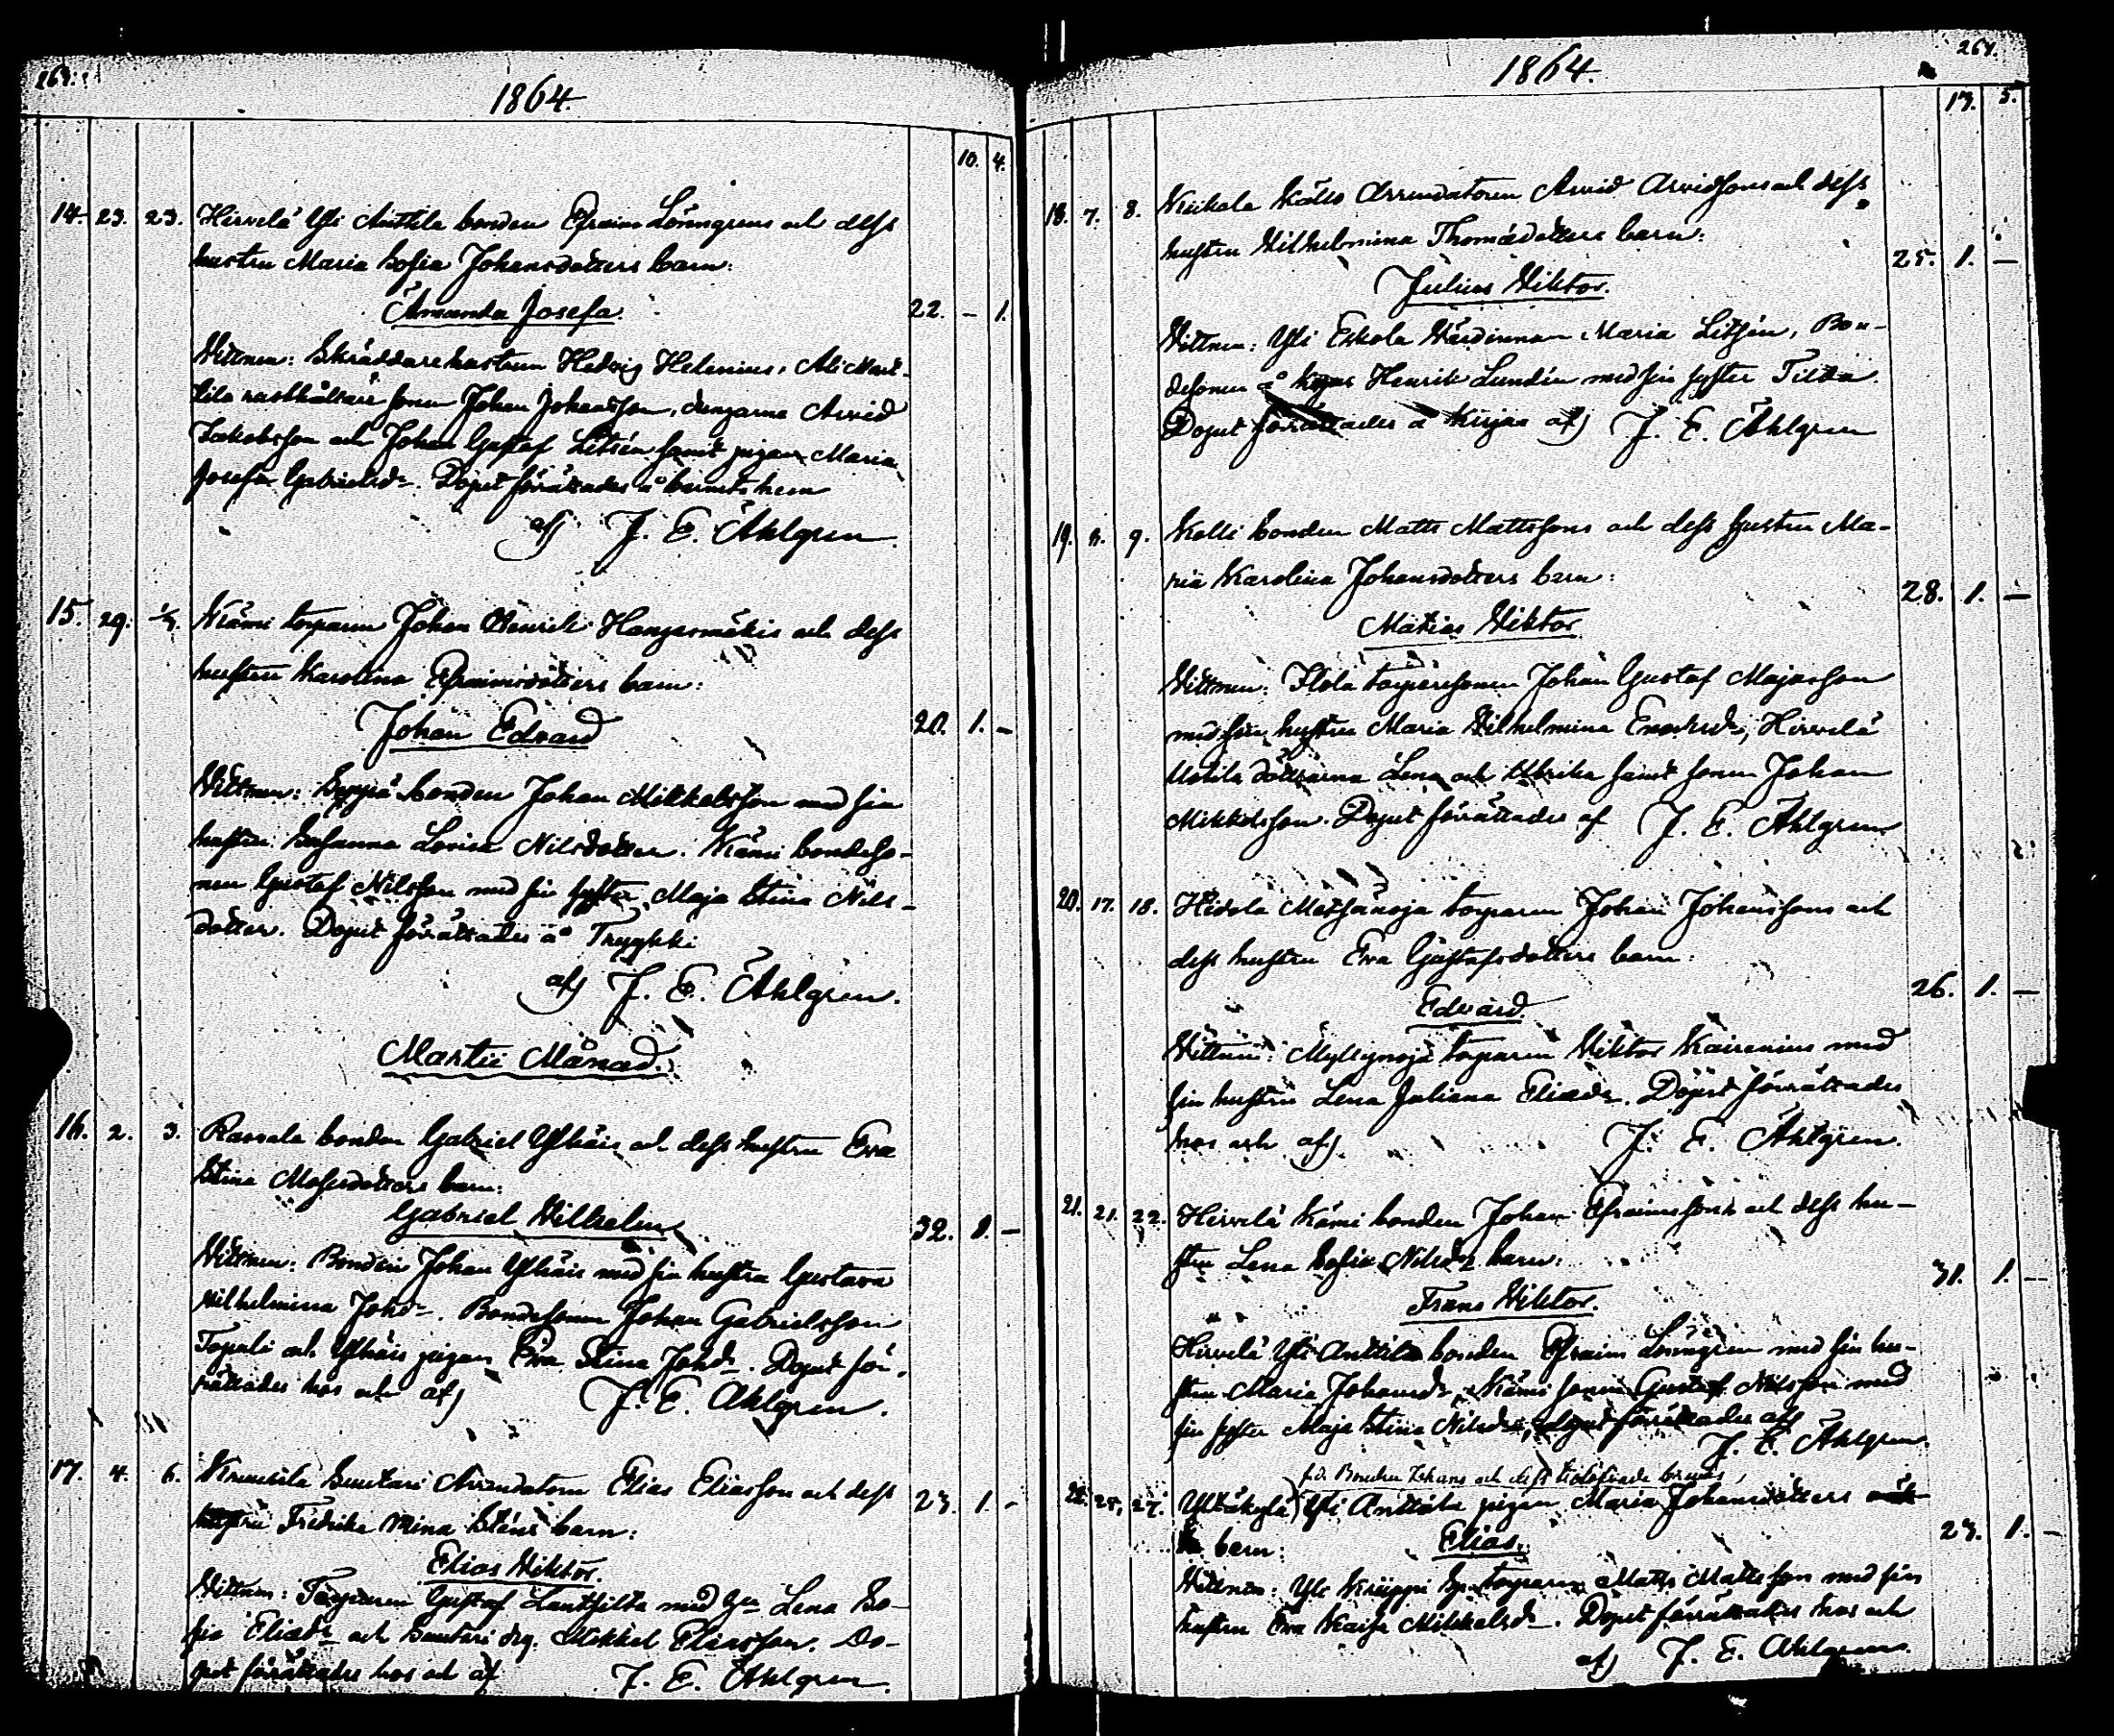 1864.
10. 4.
14. 23. 23. Hirvelä Yli Anttila bonden Efraim Lönngrens och dess
hustru Maria Sofia Johansdotters barn:
Amanda Josefa. 22. – 1.
Vittnen: Skräddarehustrun Hedvig Helenius, Ali
rusthållare sonen Johan Johansson, drengarne Arvid
Jakobsson och Johan Gustaf Litsén samt pigan Maria
Josefa Gabrielsdr. Dopet förrättades å barnets hem
af) J. E. Åhlgren.
15. 29. 1/3. Kiämi torparen Johan Henrik Hangasmäkis och dess
hustru Karolina Efraimsdotters barn:
Johan Edvard 20. 1. –
Vittnen: Seppä bonden Johan Mikkelsson med sin
hustru Susanna Lovisa Nilsdotter. Kiämi bondeso-
nen Gustaf Nilsson med sin syster Maja Stina Nils-
dotter. Dopet förrättades å Tryykki
af) J. E. Åhlgren.
Martii Månad.
16. 2. 3. Rassala bonden Gabriel Ylhäis och dess hustru Eva
Stina Mosesdotters barn:
Gabriel Vilhelm 32. 1. –
Vittnen: Bonden Johan Ylhäis med sin hustru Gustava
Vilhelmina Johdr. Bondesonen Johan Gabrielsson
Topali och Ylhäis pigan Eva Stina Johdr. Dopet för-
rättades hos och af) J. E. Åhlgren.
17. 4. 6. Suutari Arrendatorn Elias Eliasson och dess
hustru Fredrika Mina Sténs barn: 23. 1. –
Elias Viktor.
Vittnen: Torparen Gustaf Lauthilta med Lena So-
fia Eliædr och Suutari drg. Mikkel Eliasson. Do-
pet förrättades hos och af J. E. Åhlgren.
1864. 267.
13. 5.
18. 7. 8. Keikala Källs Arrendatoren Arvid Arvidssons och dess
hustru Vilhelmina Thomædotters barn: 25. 1. –
Julius Viktor.
Vittnen: Yli Eskola Värdinnan Maria Litsén, Bon-
desonen å Henrik Lundén med sin syster Tilda.
Dopet förrättades å Kirjas af) J. E. Åhlgren
19. 8. 9. Kolli bonden Matts Mattssons och dess hustru Ma-
ria Karolina Johansdotters barn: 28. 1. –
Matias Viktor
Vittnen: torparesonen Johan Gustaf Majasson
med sin hustru Maria Vilhelmina Hirvelä
Uotila döttrarna Lena och Ulrika samt sonen Johan
Mikkelsson. Dopet förrättades af J. E. Åhlgren
20. 17. 18. Hidola Metsänoja torparen Johan Johanssons och
dess hustru Eva Gustafsdotters barn: 26. 1. –
Edvard.
Vittnen: Myllynoja torparen Viktor Kairenius med
sin hustru Lena Juliana Eliædr. Dopet förrättades
hos och af) J. E. Åhlgren.
21. 21. 22. Hirvelä Kämi bonden Johan Efraimssons och dess hu-
stru Lena Sofia Nilsdr barn: 31. 1. –
Frans Viktor.
Hirvelä Yli Anttila bonden Efraim Lönngren med sin hu-
stru Maria Johansdr, Kämi sonen Gustaf Nilsson med
sin syster Maja Stina Nilsdr, dopet förrättades af)
J. E. Åhlgren.
f.d. Bonden Johans och dess
22. 25. 27. Yli Anttila pigan Maria Johansdotters
barn: Elias. 23. 1. –
Vittnen: Yli torparen Matts Mattsson med sin
hustru Eva Kaisa Mikkelsdr. Dopet förrättades hos och
af) J. E. Åhlgren.